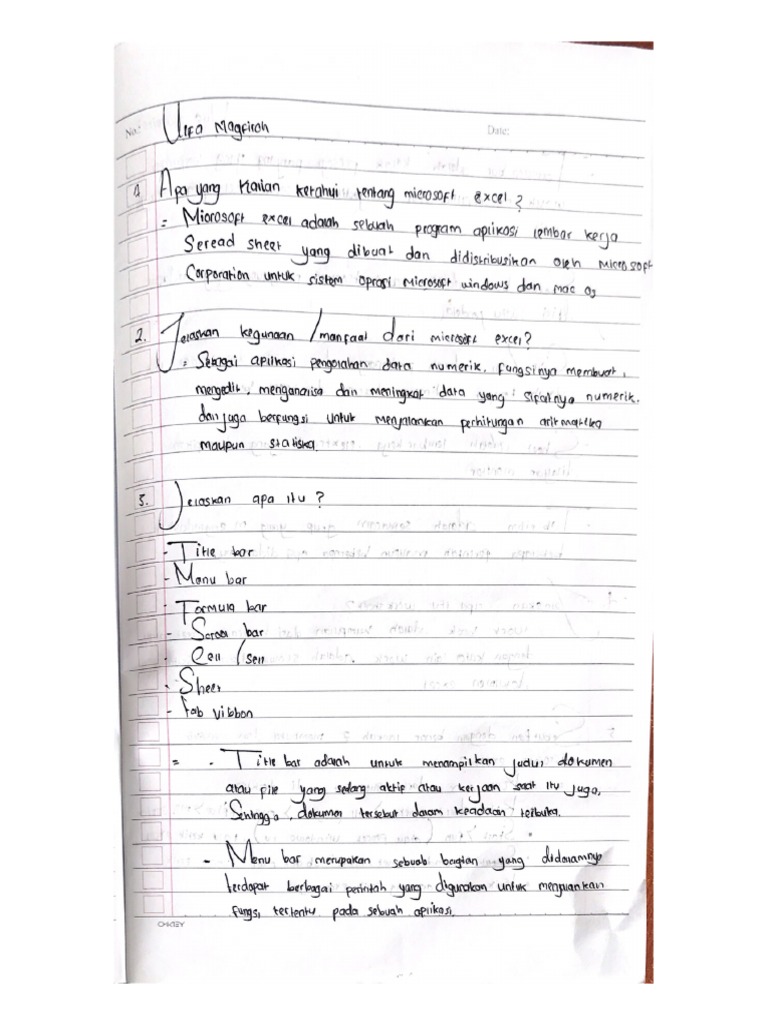 No.: Ulfa Magfirah Date:
1. Apa yang Kalian ketahui tentang microsoft excel?
= Microsoft excel adalah sebuah program aplikasi lembar kerja
Seread sheet yang dibuat dan didistribusikan oleh microsoft
Corporation untuk sistem oprasi Microsoft windows dan mac os
2. Jelaskan kegunaan / manfaat dari microsoft excel?
= Sebagai aplikasi pengolahan data numerik, fungsinya membuat,
mengedit, menganalisa dan meningkat data yang sifatnya numerik.
dan juga berfungsi untuk menjalankan perhitungan aritmatika
maupun statiska.
3. Jelaskan apa itu?
- Title bar
- Menu bar
- Formula bar
- bar
- Cell / sell
- Sheet
- Tab vibbon
= - Title bar adalah untuk menampilkan judul dokumen
atau file yang sedang aktif atau kerjaan saat itu juga,
Sehingga, dokumen tersebut dalam keadaan terbuka.
- Menu bar merupakan sebuab bagian yang didalamnya
terdapat berbagai perintah yang digunakan untuk menjalankan
fungsi tertentu pada sebuah aplikasi.